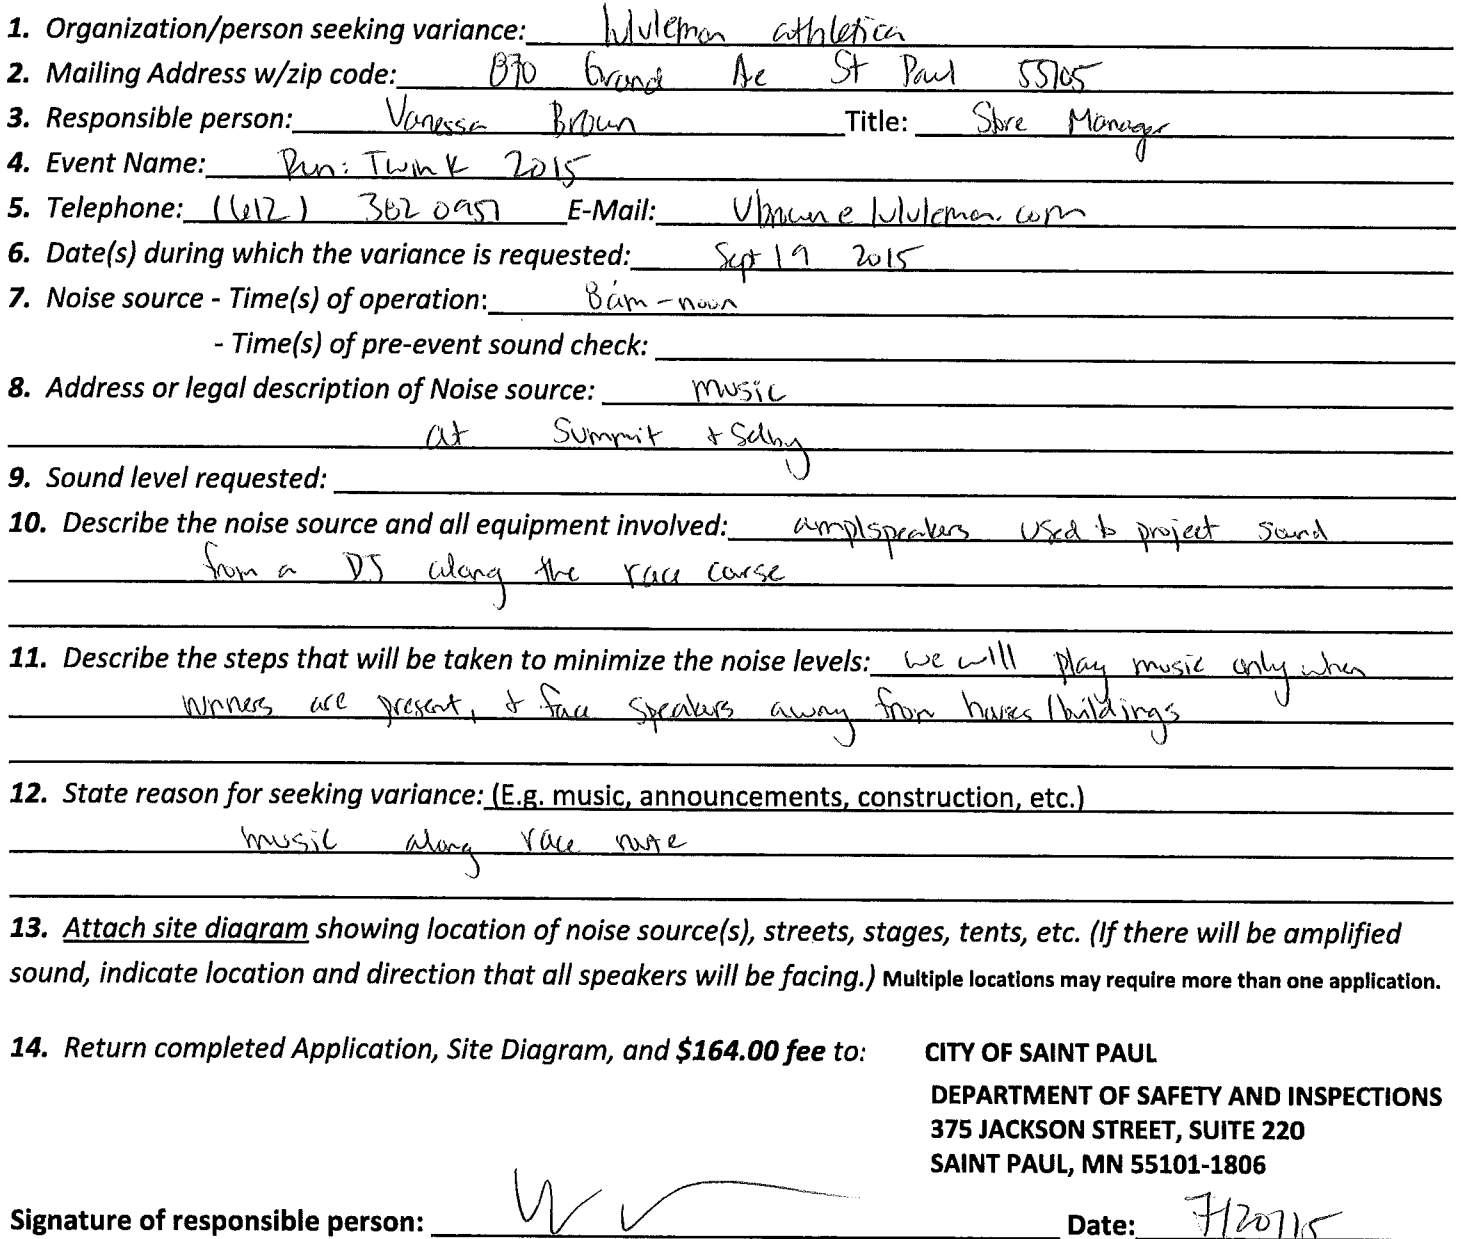 1. Organization/person seeking variance: lululemon athletica
2. Mailing Address w/zip code: 870 Grand Ave St Paul 55105
3. Responsible person: Vanessa Brown Title: Store Manager
4. Event Name: Run: Twink 2015
5. Telephone: (612) 362 0951 E-Mail: vbrown@lululemon.com
6. Date(s) during which the variance is requested: Sept 19 2015
7. Noise source - Time(s) of operation: 8am-noon
- Time(s) of pre-event sound check:
8. Address or legal description of Noise source: music
at Summit + Selby
9. Sound level requested:
10. Describe the noise source and all equipment involved: amp/speakers used to project sound
from a DJ along the race course
11. Describe the steps that will be taken to minimize the noise levels: we will play music only when
runners are present, + face speakers away from houses/buildings
12. State reason for seeking variance: (E.g. music, announcements, construction, etc.)
music along race route
13. Attach site diagram showing location of noise source(s), streets, stages, tents, etc. (If there will be amplified
sound, indicate location and direction that all speakers will be facing.) Multiple locations may require more than one application.
14. Return completed Application, Site Diagram, and $164.00 fee to: CITY OF SAINT PAUL
DEPARTMENT OF SAFETY AND INSPECTIONS
375 JACKSON STREET, SUITE 220
SAINT PAUL, MN 55101-1806
Signature of responsible person: Date: 7/20/15